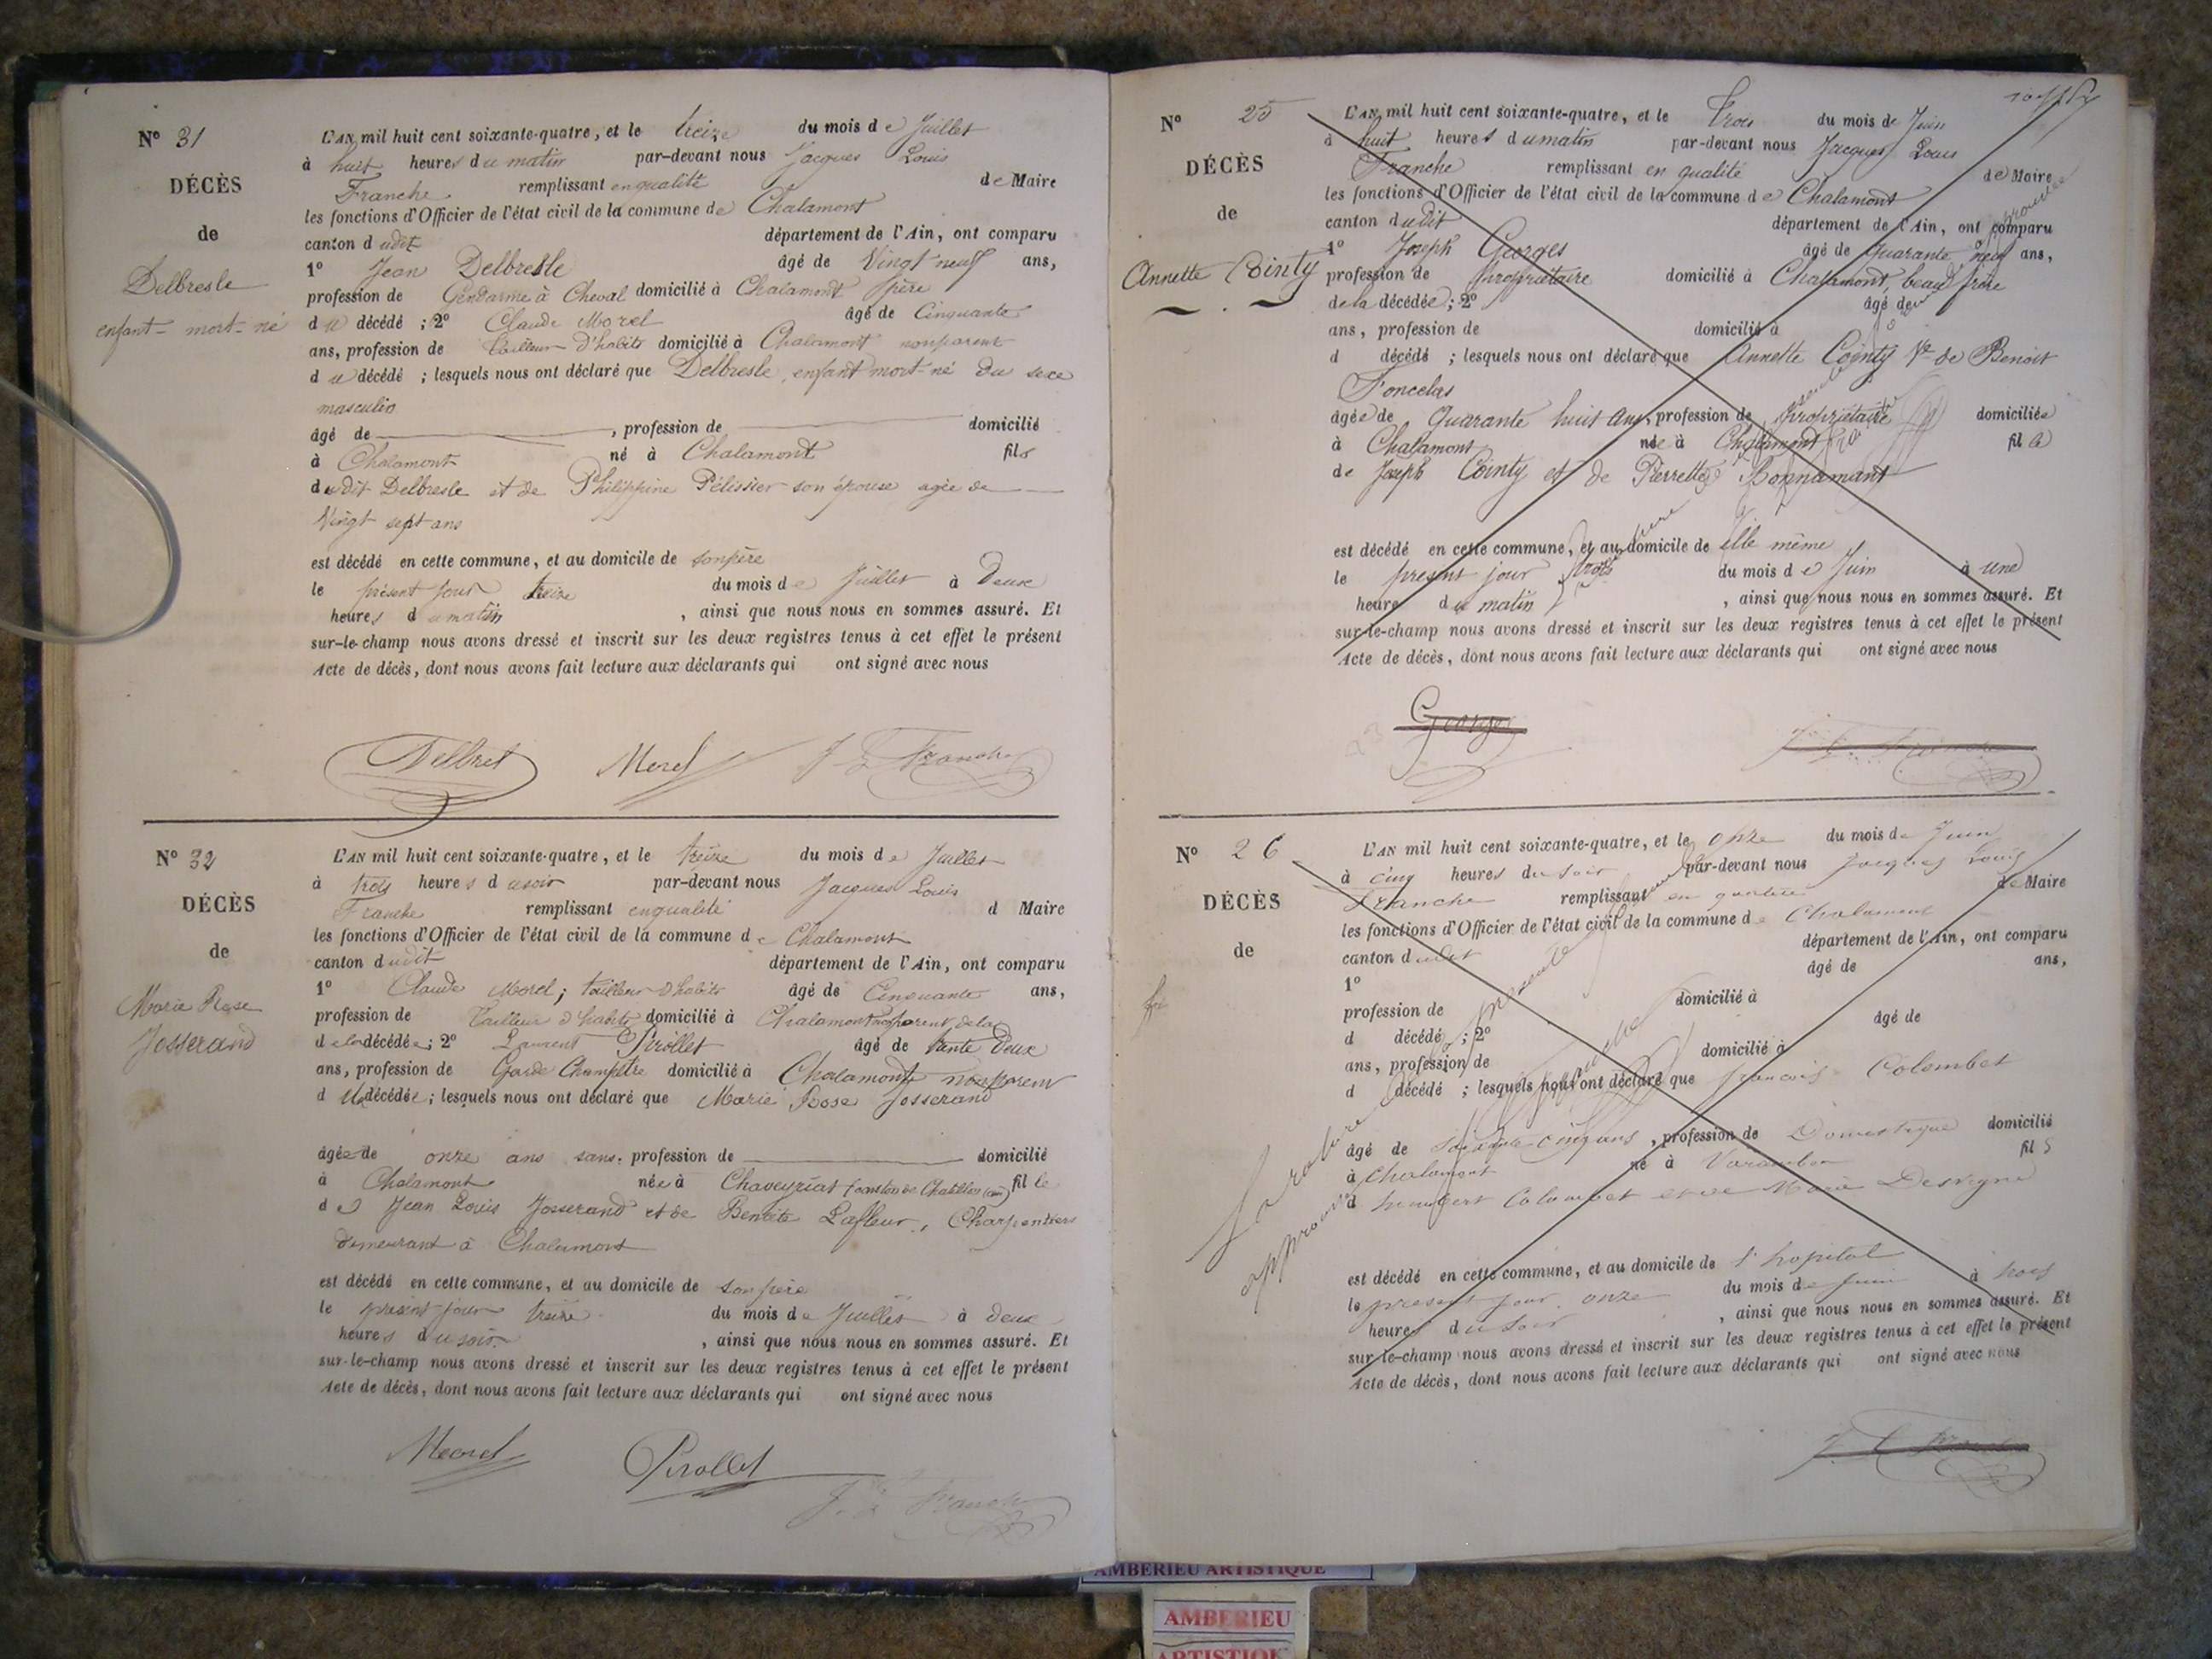 N° 31
DÉCÈS
de
Delbresle
enfant mort-né
L'AN mil huit cent soixante-quatre, et le treize du mois de Juillet
à huit heures du matin par-devant nous Jacques Louis
Franche remplissant en qualité de Maire
les fonctions d'Officier de l'état civil de la commune de Chalamont
canton dudit département de l'Ain, ont comparu
1° Jean Delbresle âgé de Vingt neuf ans,
profession de Gendarme à Cheval domicilié à Chalamont père
du décédé ; 2° Claude Morel âgé de Cinquante
ans, profession de tailleur d'habits domicilié à Chalamont non parent
du décédé ; lesquels nous ont déclaré que Delbresle, enfant mort-né du sexe
masculin
âgé de , profession de domicilié
à Chalamont né à Chalamont fils
dudit Delbresle et de Philippine Pélissier son épouse agée de
Vingt sept ans
est décédé en cette commune, et au domicile de son père
le présent jour treize du mois de Juillet à Deux
heures du matin , ainsi que nous nous en sommes assuré. Et
sur-le-champ nous avons dressé et inscrit sur les deux registres tenus à cet effet le présent
Acte de décès, dont nous avons fait lecture aux déclarants qui ont signé avec nous
Delbret Morel J L Franche
N° 32
DÉCÈS
de
Marie Rose
Josserand
L'AN mil huit cent soixante-quatre, et le treize du mois de Juillet
à trois heures du soir par-devant nous Jacques Louis
Franche remplissant en qualité d Maire
les fonctions d'Officier de l'état civil de la commune de Chalamont
canton dudit département de l'Ain, ont comparu
1° Claude Morel; tailleur d'habits âgé de Cinquante ans,
profession de Tailleur d'habits domicilié à Chalamont non parent de la
de la décédée; 2° Laurent Pirollet âgé de trente Deux
ans, profession de Garde Champêtre domicilié à Chalamont non parent
d décédée; lesquels nous ont déclaré que Marie Rose Josserand
âgée de onze ans sans profession de domicilié
à Chalamont née à Chaveyriat (canton de Chatillon (ain) fille
de Jean Louis Josserand et de Benoite Lafleur, Charpentiers
demeurant à Chalamont
est décédé en cette commune, et au domicile de son père
le présent jour treize du mois de Juillet à deux
heures du soir , ainsi que nous nous en sommes assuré. Et
sur-le-champ nous avons dressé et inscrit sur les deux registres tenus à cet effet le présent
Acte de décès, dont nous avons fait lecture aux déclarants qui ont signé avec nous
Morel Pirollet
J. L Franche
N° 25
DÉCÈS
de
Annette Cointy
L'AN mil huit cent soixante-quatre, et le Trois du mois de Juin
à huit heures du matin par-devant nous Jacques Louis
Franche remplissant en qualité de Maire
les fonctions d'Officier de l'état civil de la commune de Chalamont
canton dudit département de l'Ain, ont comparu
1° Joseph Georges âgé de Quarante neuf ans,
profession de propriétaire domicilié à Chalamont, beau frère
de la décédée; 2° âgé de
ans, profession de domicilié à
d décédé ; lesquels nous ont déclaré que Annette Cointy Ve de Benoit
Foncelas
âgée de Quarante huit ans, profession de propriétaire domiciliée
à Chalamont née à Chalamont fille
de Joseph Cointy et de Pierrette Bonnamant
est décédé en cette commune, et au domicile de Elle même
le présent jour trois du mois de Juin à une
heure du matin , ainsi que nous nous en sommes assuré. Et
sur-le-champ nous avons dressé et inscrit sur les deux registres tenus à cet effet le présent
Acte de décès, dont nous avons fait lecture aux déclarants qui ont signé avec nous
Georges J L Franche
N° 26
DÉCÈS
de
L'AN mil huit cent soixante-quatre, et le onze du mois de Juin
à cinq heures du soir par-devant nous Jacques Louis
Franche remplissant en qualité de Maire
les fonctions d'Officier de l'état civil de la commune de Chalamont
canton dudit département de l'Ain, ont comparu
1° âgé de ans,
profession de domicilié à
d décédé ; 2° âgé de
ans, profession de domicilié à
d décédé ; lesquels nous ont déclaré que françois Colombet
âgé de soixante-cinq ans, profession de Domestique domicilié
à Chalamont né à Varambon fils
d humbert Colombet et de Marie Desvigne
est décédé en cette commune, et au domicile de l'hopital
le présent jour onze du mois de Juin à trois
heures du soir , ainsi que nous nous en sommes assuré. Et
sur-le-champ nous avons dressé et inscrit sur les deux registres tenus à cet effet le présent
Acte de décès, dont nous avons fait lecture aux déclarants qui ont signé avec nous
J. L Franche
la rature de la présente
approuvée
AMBERIEU ARTISTIQUE
AMBERIEU
ARTISTIQUE